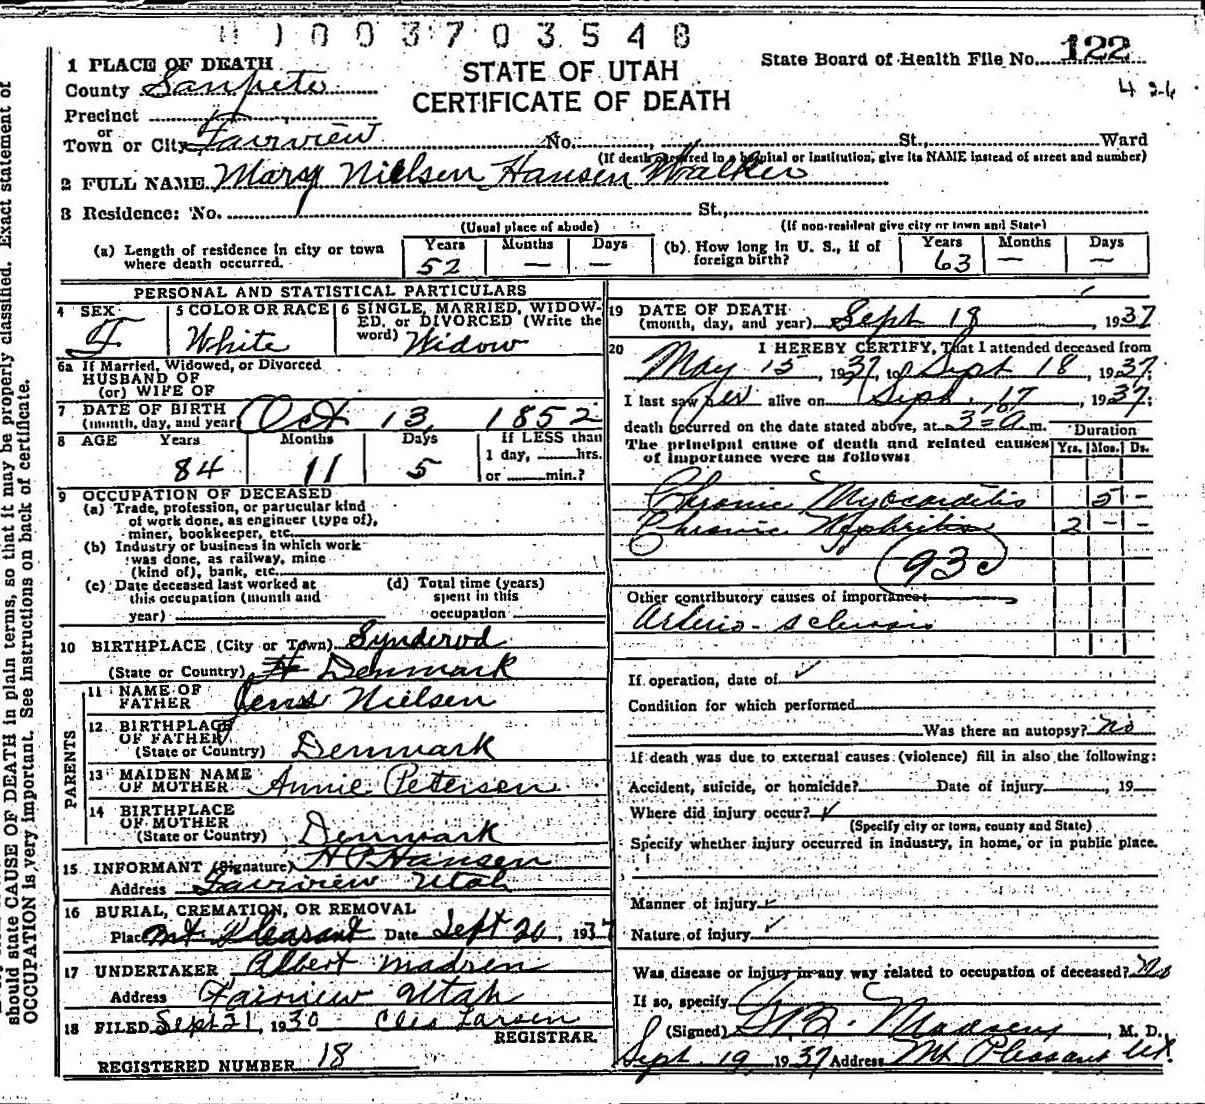 01003703548
1 PLACE OF DEATH
STATE OF UTAH
CERTIFICATE OF DEATH
State Board of Health File No. 122
4 26
County Sanpete
Precinct
or
Town or City Fairview No. St., Ward
(If death occurred in a hospital or institution, give its NAME instead of street and number)
2 FULL NAME Mary Nielsen Hansen Walker
3 Residence: No. St.,
(Usual place of abode) (If non-resident give city or town and State)
(a) Length of residence in city or town where death occurred. Years 52 Months — Days —
(b) How long in U. S., if of foreign birth? Years 63 Months — Days —
PERSONAL AND STATISTICAL PARTICULARS
4 SEX F
5 COLOR OR RACE White
6 SINGLE, MARRIED, WIDOWED, or DIVORCED (Write the word) Widow
6a If Married, Widowed, or Divorced
HUSBAND OF
(or) WIFE OF
7 DATE OF BIRTH
(month, day, and year) Oct 13, 1852
8 AGE Years 84 Months 11 Days 5 If LESS than 1 day, hrs. or min.?
9 OCCUPATION OF DECEASED
(a) Trade, profession, or particular kind
of work done, as engineer (type of),
miner, bookkeeper, etc.
(b) Industry or business in which work
was done, as railway, mine
(kind of), bank, etc.
(c) Date deceased last worked at
this occupation (month and
year)
(d) Total time (years)
spent in this
occupation
10 BIRTHPLACE (City or Town) Synderod
(State or Country) Denmark
PARENTS
11 NAME OF FATHER Jens Nielsen
12 BIRTHPLACE OF FATHER
(State or Country) Denmark
13 MAIDEN NAME OF MOTHER Annie Petersen
14 BIRTHPLACE OF MOTHER
(State or Country) Denmark
15 INFORMANT (Signature) H P Hansen
Address Fairview Utah
16 BURIAL, CREMATION, OR REMOVAL
Place Mt Pleasant Date Sept 20, 1937
17 UNDERTAKER Albert Madsen
Address Fairview Utah
18 FILED Sept 21, 1930 Cleo Larsen
REGISTRAR.
REGISTERED NUMBER 18
19 DATE OF DEATH
(month, day, and year) Sept 18, 1937
20 I HEREBY CERTIFY, That I attended deceased from
May 15, 1937, to Sept 18, 1937.
I last saw her alive on Sept. 17, 1937;
death occurred on the date stated above, at 3 10 a m.
Duration
The principal cause of death and related causes
of importance were as follows:
Yrs. Mos. Ds.
Chronic Myocarditis 5 -
Chronic Nephritis 2 - -
93c
Other contributory causes of importance:
Arterio-sclerosis
If operation, date of
Condition for which performed
Was there an autopsy? No
If death was due to external causes (violence) fill in also the following:
Accident, suicide, or homicide? Date of injury , 19
Where did injury occur?
(Specify city or town, county and State)
Specify whether injury occurred in industry, in home, or in public place.
Manner of injury
Nature of injury
Was disease or injury in any way related to occupation of deceased? No
If so, specify
(Signed) Madsen, M. D.
Sept. 19, 1937 Address Mt Pleasant Ut.
should state CAUSE OF DEATH in plain terms, so that it may be properly classified. Exact statement of
OCCUPATION is very important. See instructions on back of certificate.